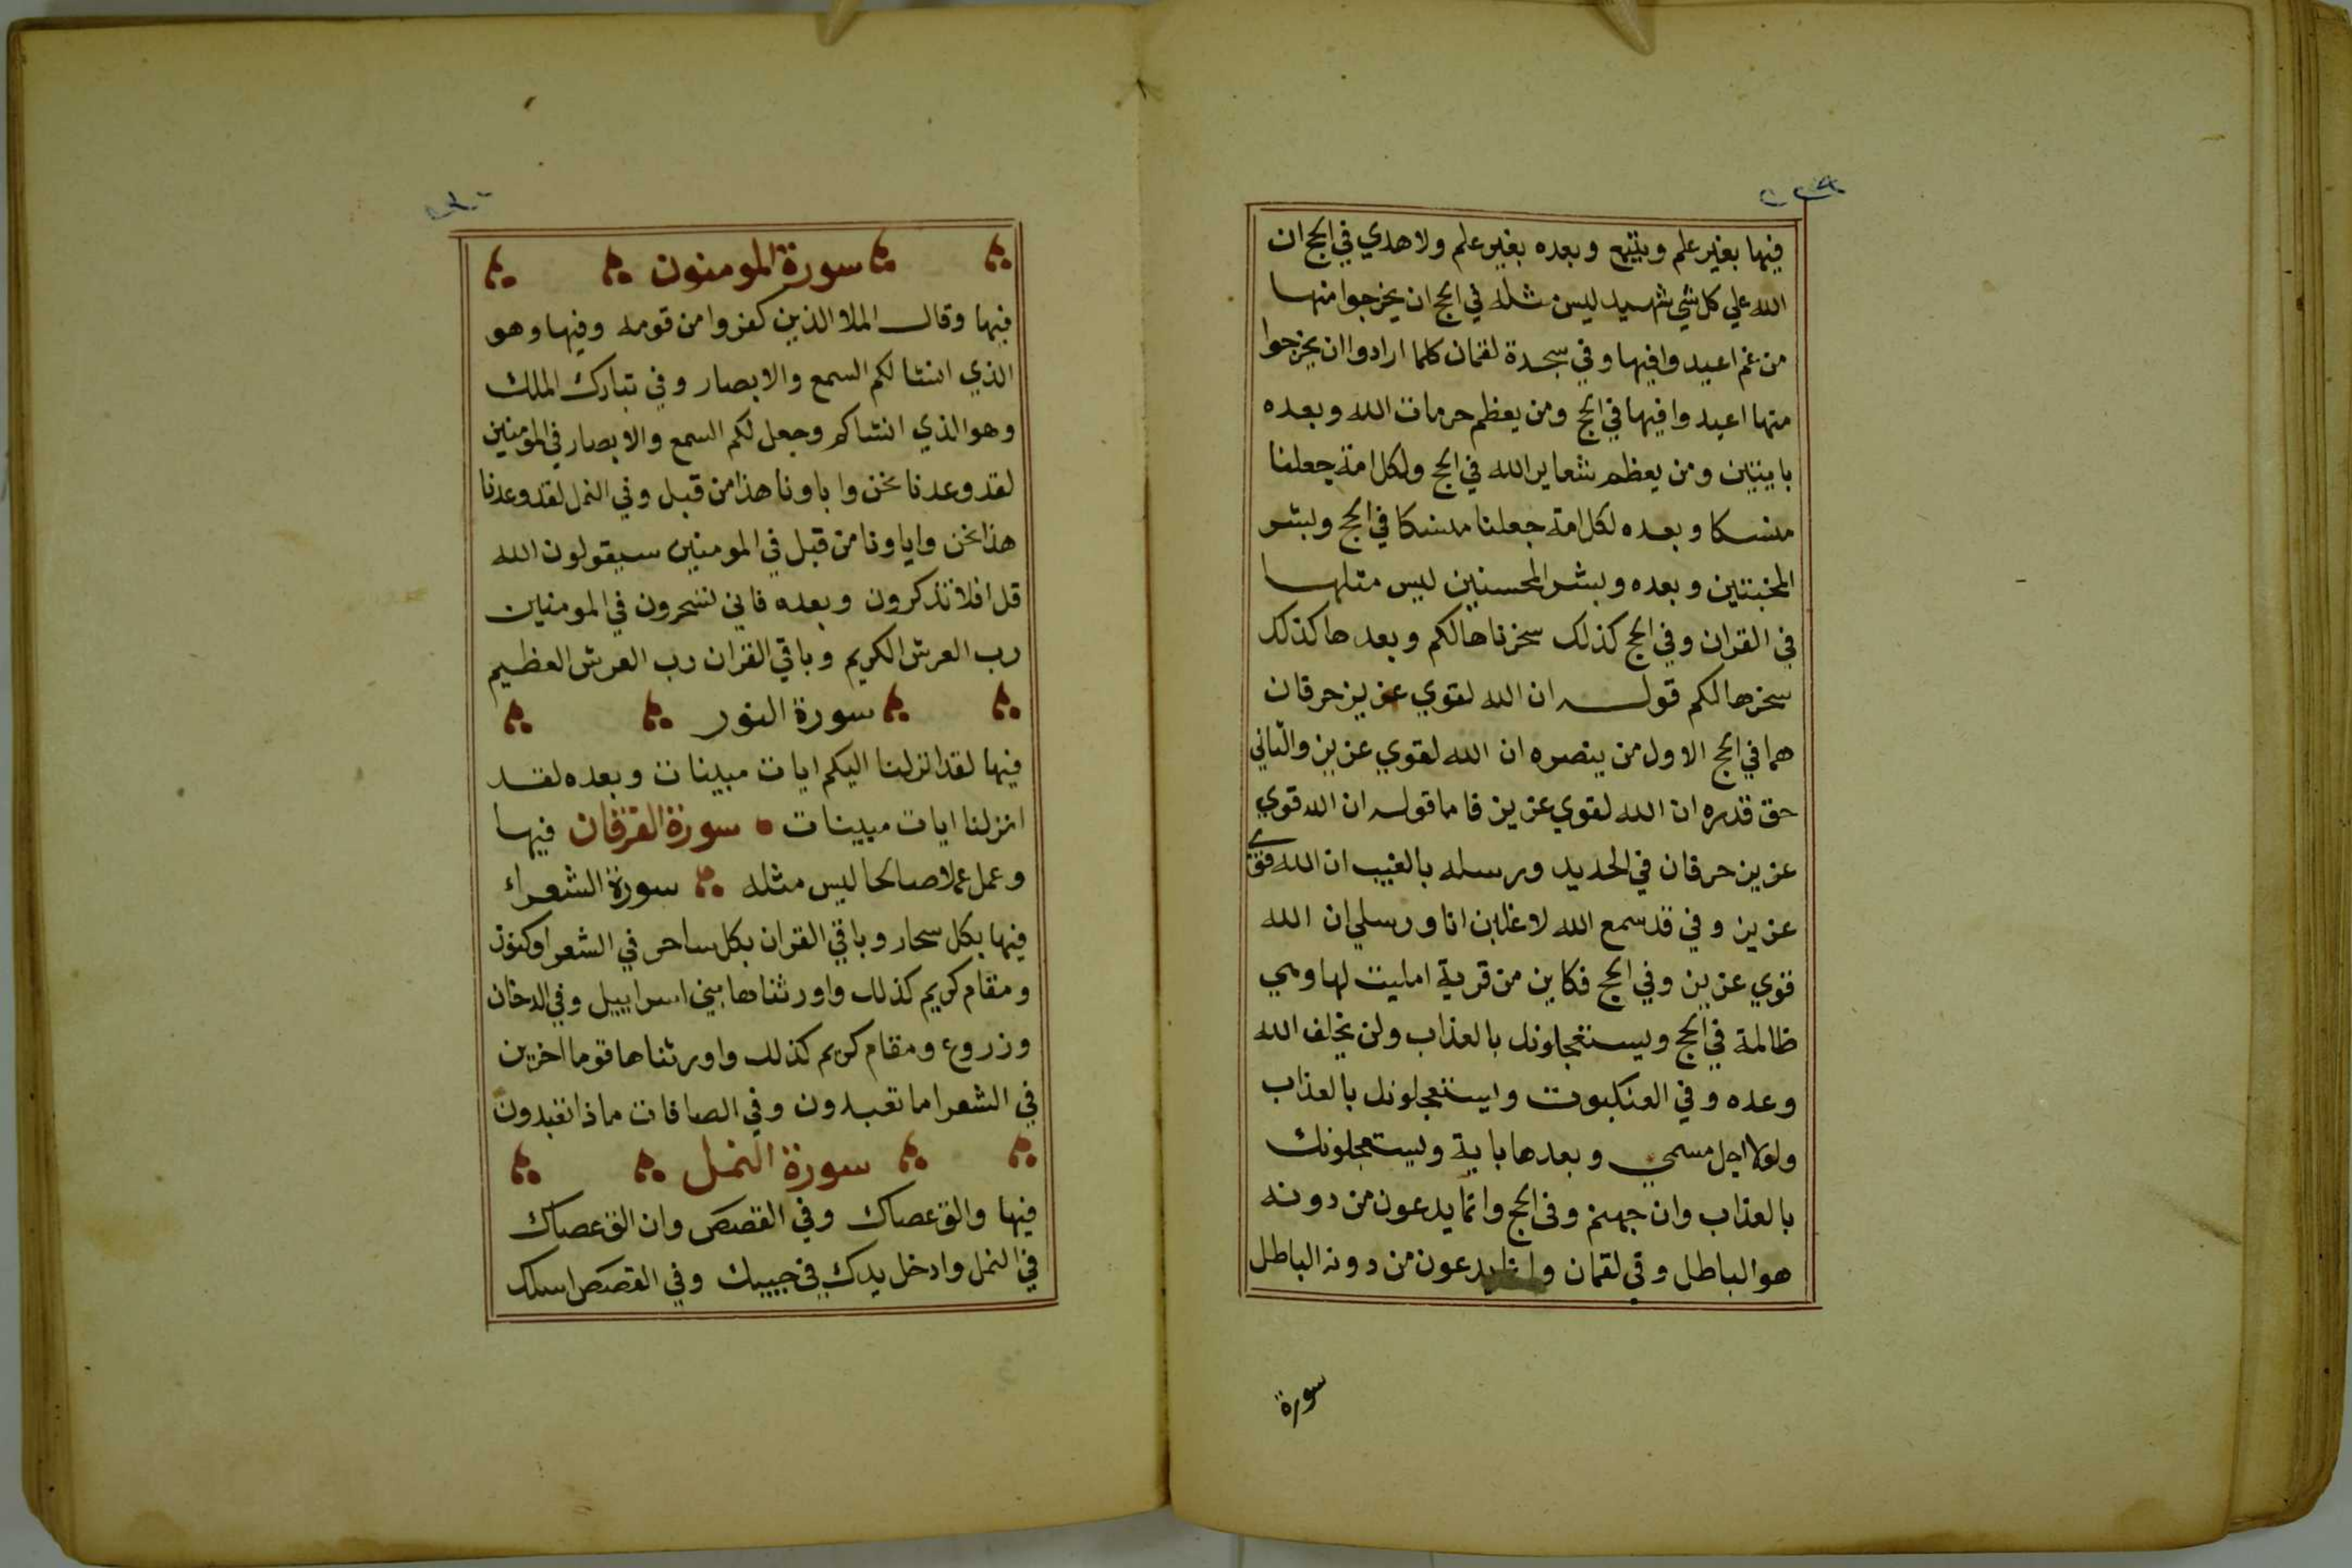 فيها بغير علم ويتبع وبعده بغير علم ولا هدي في الحج ان
الله علي كل شي شهيد ليس مثله في الحج ان يخرجوا منها
من غم اعيدوا فيها وفي سجدة لقمان كلما ارادوا ان يخرجوا
منها اعيدوا فيها في الحج ومن يعظم حرمات الله وبعده
بايتين ومن يعظم شعاير الله في الحج ولكل امة جعلنا
منسكا وبعده لكل امة جعلنا منسكا في الحج وبشر
المخبتين وبعده وبشر المحسنين ليس مثلها
في القران وفي الحج كذلك سخرناها لكم وبعدها كذلك
سخرها لكم قوله ان الله لقوي عزيز حرفان
هما في الحج الاول من ينصره ان الله لقوي عزيز والثاني
حق قدره ان الله لقوي عزيز فاما قوله ان الله قوي
عزيز حرفان في الحديد ورسله بالغيب ان الله قوي
عزيز وفي قد سمع الله لاغلبن انا ورسلي ان الله
قوي عزيز وفي الحج فكاين من قرية امليت لها وهي
ظالمة في الحج ويستعجلونك بالعذاب ولن يخلف الله
وعده وفي العنكبوت ويستعجلونك بالعذاب
ولولا اجل مسمي وبعدها باية ويستعجلونك
بالعذاب وان جهنم وفي الحج وانما يدعون من دونه
هو الباطل وفي لقمان يدعون من دونه الباطل
سورة
سورة المومنون
فيها وقال الملا الذين كفروا من قومه وفيها وهو
الذي انشا لكم السمع والابصار وفي تبارك الملك
وهو الذي انشاكم وجعل لكم السمع والابصار في المومنين
لقد وعدنا نحن واباونا هذا من قبل وفي النمل لقد وعدنا
هذا نحن واباونا من قبل في المومنين سيقولون الله
قل افلا تذكرون وبعده فاني تسحرون في المومنين
رب العرش الكريم وباقي القران رب العرش العظيم
سورة النور
فيها لقد انزلنا اليكم ايات مبينات وبعده لقد
انزلنا ايات مبينات سورة الفرقان فيها
وعمل عملا صالحا ليس مثله سورة الشعراء
فيها بكل سحار وباقي القران بكل ساحر في الشعرا وكنوز
ومقام كريم كذلك واورثناها بني اسراييل وفي الدخان
وزروع ومقام كريم كذلك واورثناها قوما اخرين
في الشعرا ما تعبدون وفي الصافات ماذا تعبدون
سورة النمل
فيها والق عصاك وفي القصص وان الق عصاك
في النمل وادخل يدك في جيبك وفي القصص اسلك